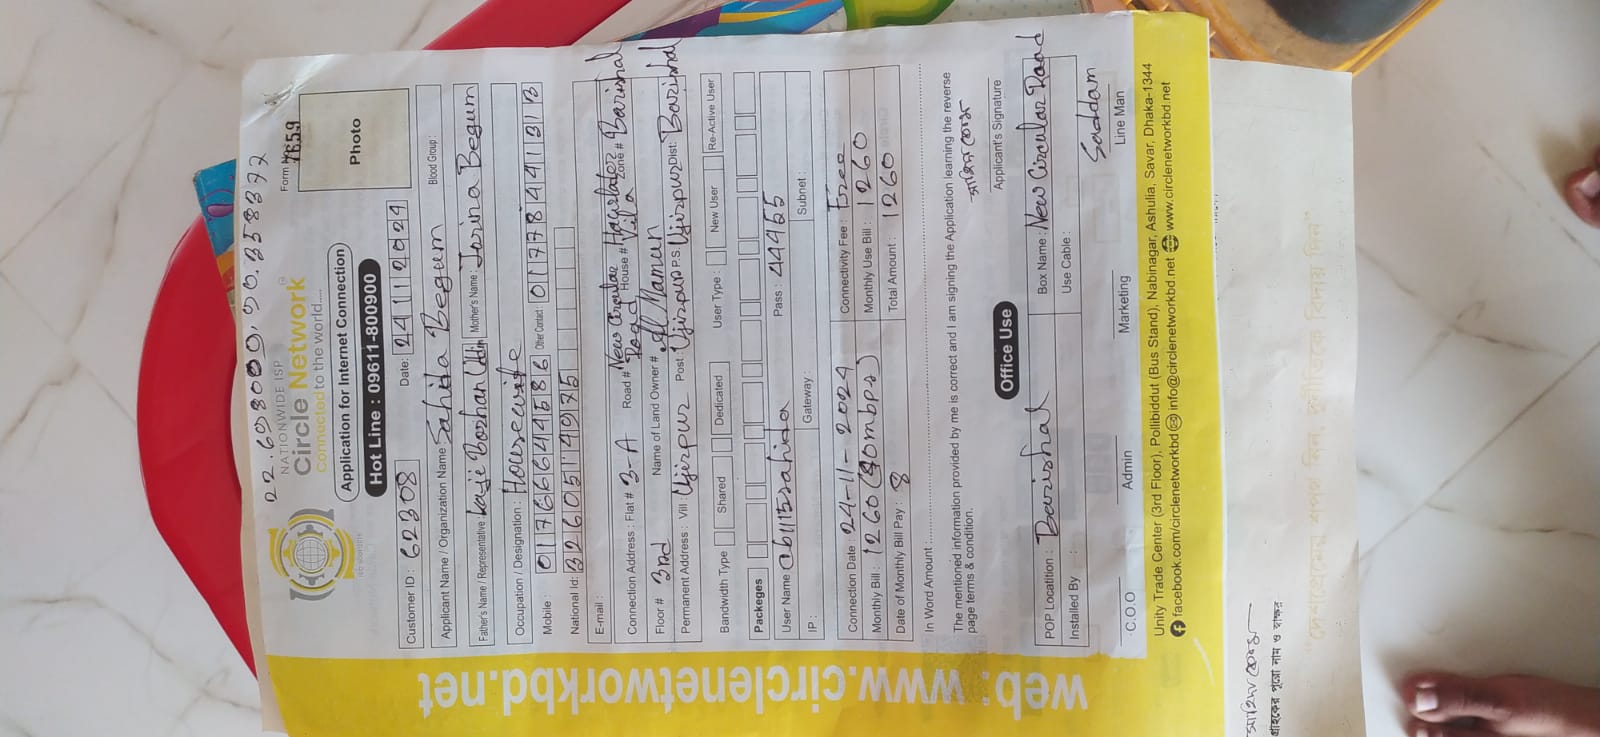 22.698000, 90.358372
NATIONWIDE ISP
Circle Network
Connected to the world.....
Form No 7659
Photo
Application for Internet Connection
Hot Line : 09611-800900
Customer ID : 62308 Date: 24 11 2024
Applicant Name / Organization Name Sahida Begum Blood Group:
Father's Name / Representative Kazi Borhan Uddin Mother's Name: Jorina Begum
Occupation / Designation : Housewife
Mobile : 01766644586 Other Contact 01778441313
National Id: 32605114975
E-mail :
Connection Address : Flat # 3-A Road # New Circular Road House # Vila Zone # Barishal
Floor # 3rd Name of Land Owner # Al Mamun
Permanent Address : Vill : Ujirpur Post: Ujirpur P.S. Ujirpur Dist: Barishal
Bandwidth Type Shared Dedicated User Type : New User Re-Active User
Packeges
User Name @b1115sahida Pass : 44455
IP : Gateway : Subnet :
Connection Date : 24-11-2024 Connectivity Fee : Free
Monthly Bill : 1260 (40mbps) Monthly Use Bill : 1260
Date of Monthly Bill Pay : 8 Total Amount : 1260
In Word Amount :
The mentioned information provided by me is correct and I am signing the Application learning the reverse
page terms & condition.
Applicant's Signature
Office Use
POP Locatition : Barishal Box Name : New Circular Road
Installed By : Use Cable :
Saddam
C.O.O Admin Marketing Line Man
Unity Trade Center (3rd Floor), Pollibiddut (Bus Stand), Nabinagar, Ashulia, Savar, Dhaka-1344
facebook.com/circlenetworkbd info@circlenetworkbd.net www.circlenetworkbd.net
web: www.circlenetworkbd.net
গ্রাহকের পূরো নাম ও স্বাক্ষর